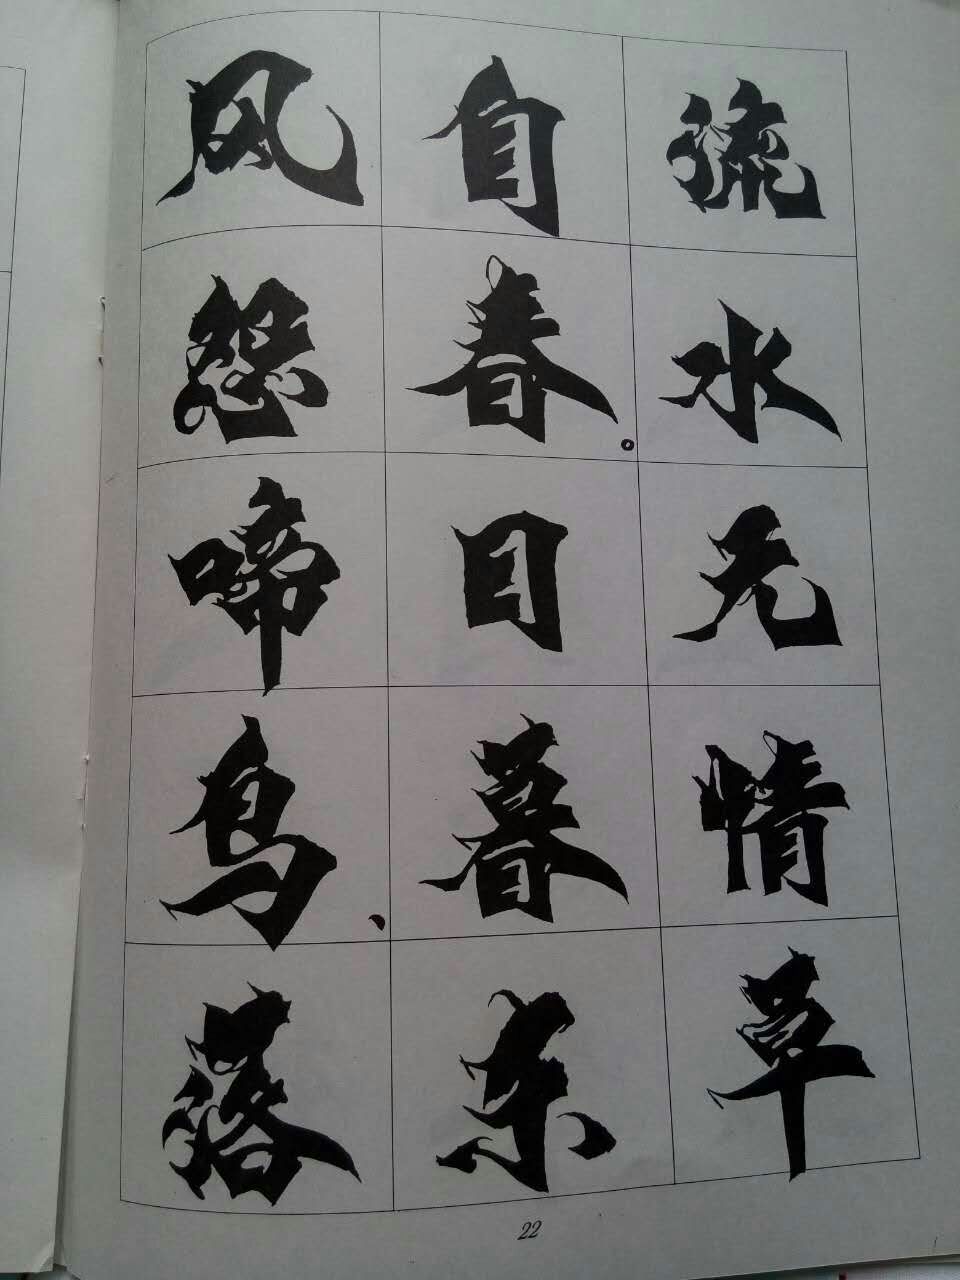 流水无情草
自春。日暮东
风怨啼鸟、落
22